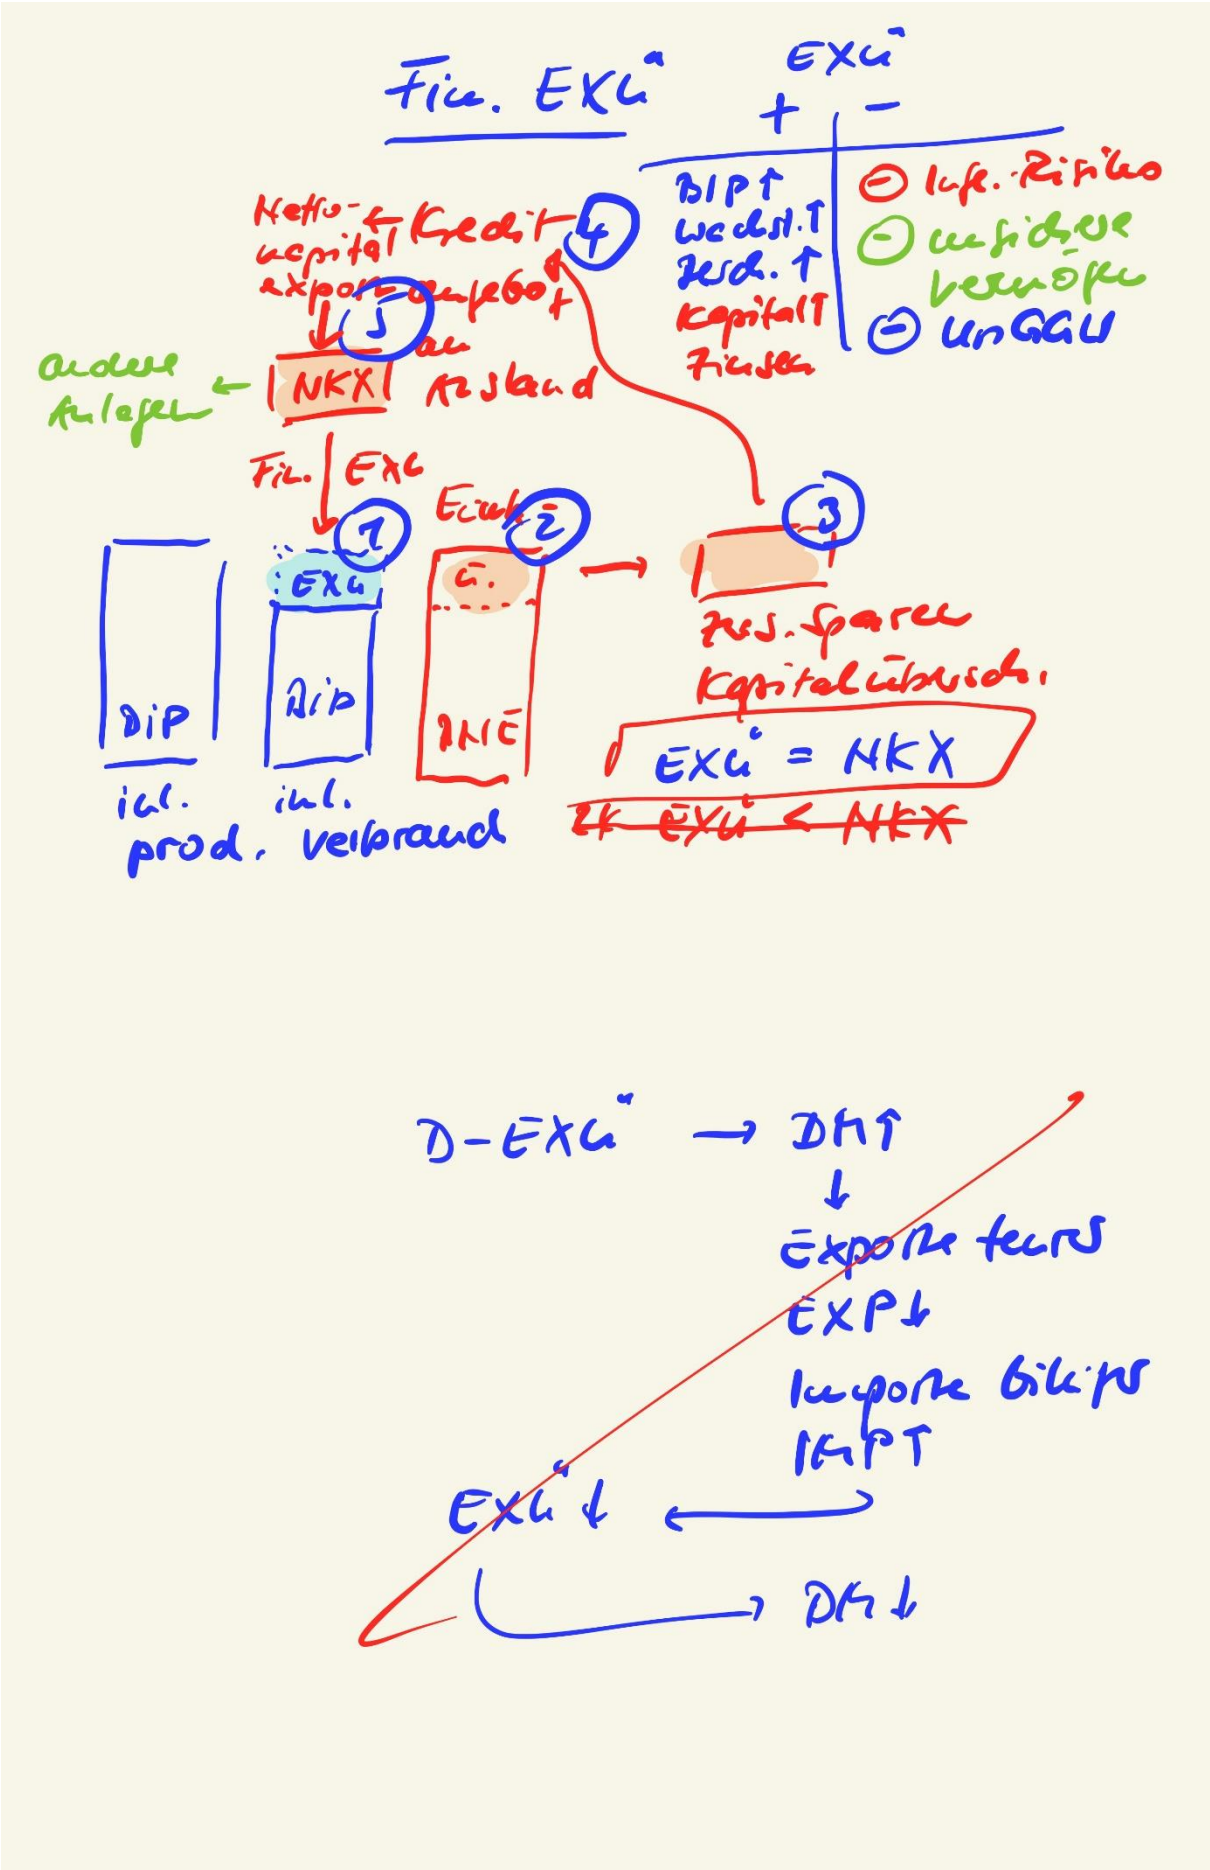 Fin. EXÜ
EXÜ
+ -
BIP↑
Wachst.↑
Besch.↑
Kapital↑
Zinsen
⊖ Infl.-Risiko
⊖ unsichere
Vermögen
⊖ UnGGW
Netto-
kapital
export
← Kredit-
angebot
an
Ausland
4
5
NKX
andere
Anlagen ←
Fin. EXÜ
1
Eink.
2
3
EXÜ
Ü.
BIP
BIP
BNE
inl.
inl.
prod. verbrauch
zus. Sparen
Kapitalübersch.
EXÜ = NKX
EXÜ < NKX
D-EXÜ → DM↑
↓
Exporte teurer
EXP↓
Importe billiger
IMP↑
EXÜ↓ ←
→ DM↓